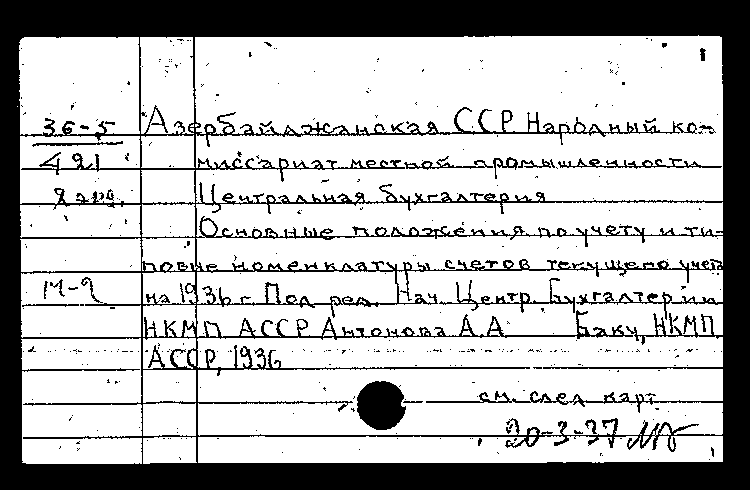 1
36-5 Азербайджанская ССР Народный ко-
421 миссариат местной промышленности
Центральная бухгалтерия
Основные положения по учету и ти-
повые номенклатуры счетов текущего учета
М-2 на 1936 г. Под ред. Нач. Центр. Бухгалтерии
НКМП АССР Антонова А.А Баку, НКМП
АССР, 1936
см. след карт
20-3-37